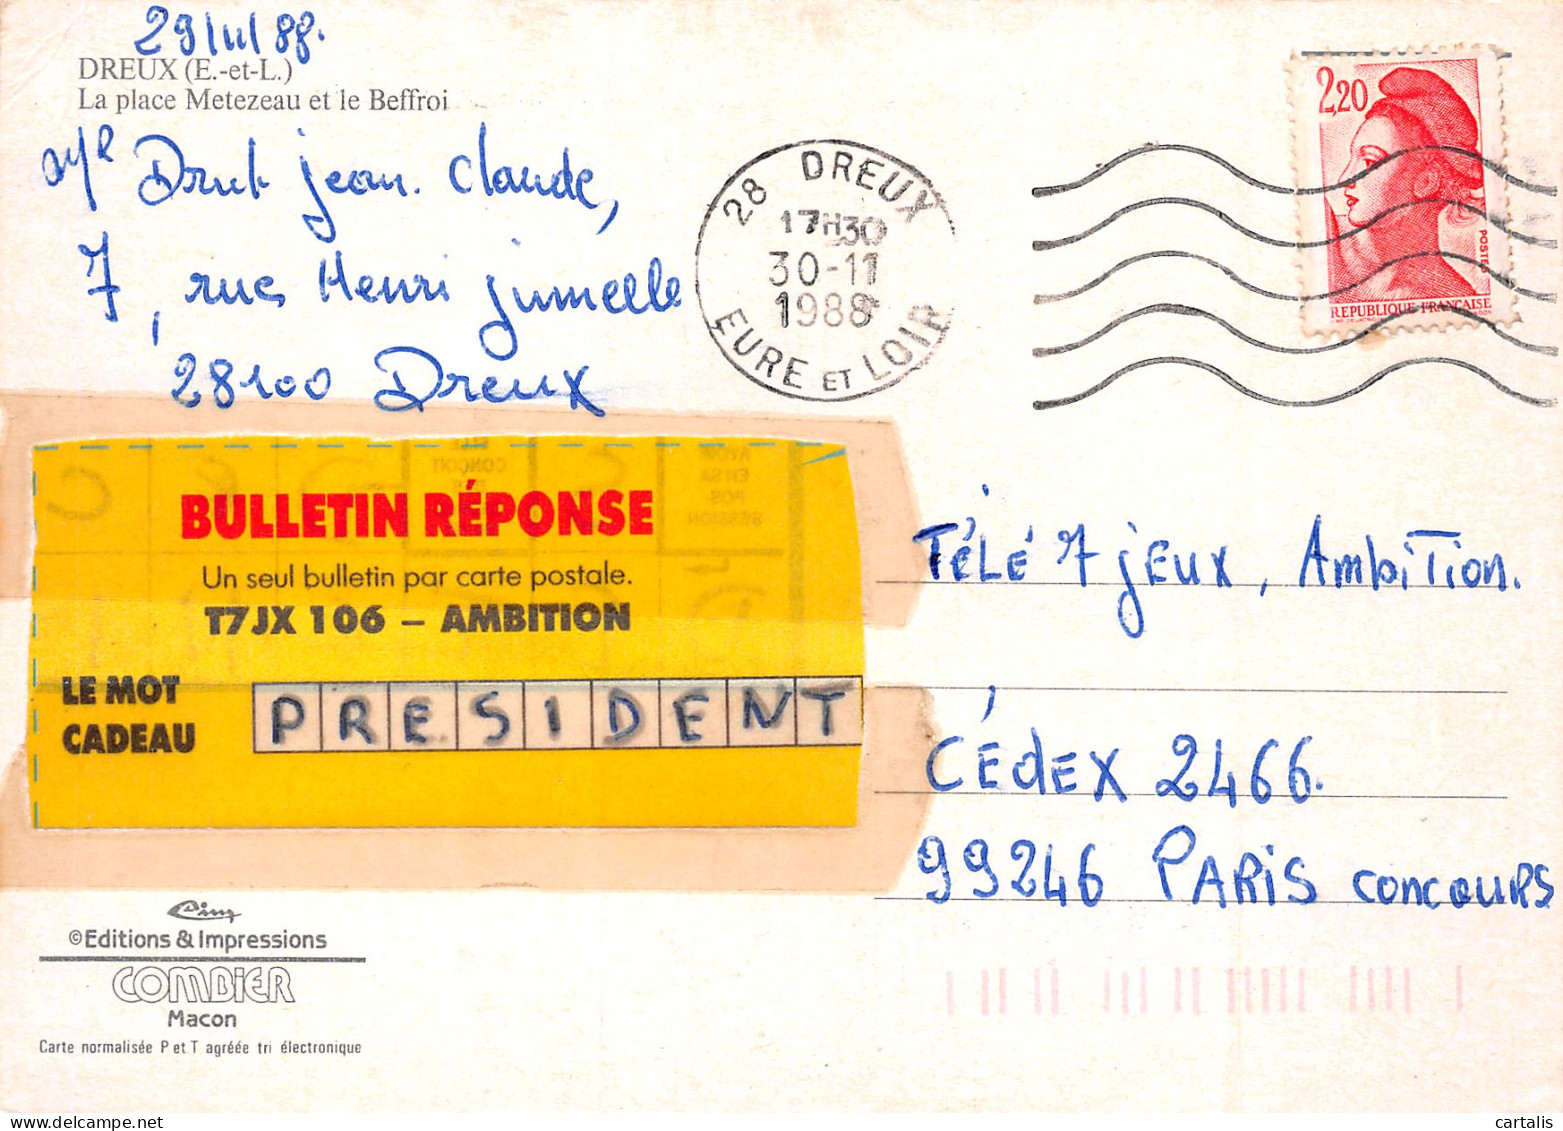 29/11/88.
DREUX (E.-et-L.)
La place Metezeau et le Beffroi
Mr Drut jean. Claude,
7, rue Henri jumelle
28100 Dreux
28 DREUX
17H30
30-11
1988
EURE ET LOIR
2,20
POSTES
REPUBLIQUE FRANÇAISE
AVOIR
EN SA
POS-
SESSION
CONÇOIT
BULLETIN RÉPONSE
Un seul bulletin par carte postale.
T7JX 106 – AMBITION
LE MOT
CADEAU
PRESIDENT
TÉLÉ 7 jEUX, AmbiTion.
CÉdEX 2466.
99246 PARIS concouRS
Cim
©Editions & Impressions
COMBIER
Macon
Carte normalisée P et T agréée tri électronique
www.delcampe.net
cartalis